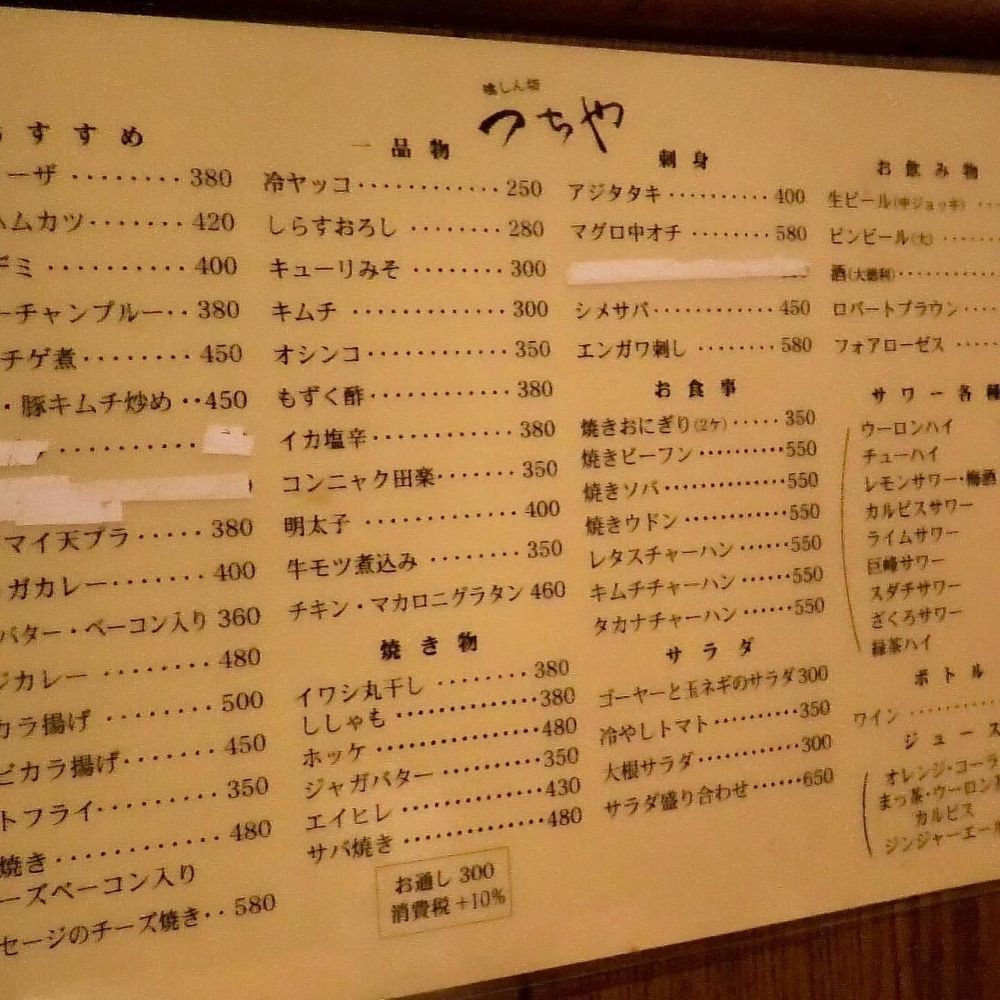 喰しん坊
つちや
すすめ
ーザ ········ 380
ハムカツ ······· 420
デミ ·········· 400
ーチャンプルー ·· 380
チゲ煮 ········ 450
・豚キムチ炒め ·· 450
マイ天プラ ····· 380
ガカレー ······· 400
バター・ベーコン入り 360
ジカレー ······· 480
カラ揚げ ········ 500
ビカラ揚げ ······· 450
トフライ ········ 350
焼き ············ 480
ーズベーコン入り
セージのチーズ焼き ·· 580
一品物
冷ヤッコ ············ 250
しらすおろし ········ 280
キューリみそ ········ 300
キムチ ············ 300
オシンコ ··········· 350
もずく酢 ··········· 380
イカ塩辛 ··········· 380
コンニャク田楽 ······· 350
明太子 ············ 400
牛モツ煮込み ········ 350
チキン・マカロニグラタン 460
焼き物
イワシ丸干し ········ 380
ししゃも ············ 380
ホッケ ·············· 480
ジャガバター ········· 350
エイヒレ ············ 430
サバ焼き ············ 480
お通し 300
消費税 +10%
刺身
アジタタキ ·········· 400
マグロ中オチ ········ 580
シメサバ ············ 450
エンガワ刺し ········ 580
お食事
焼きおにぎり(2ケ) ····· 350
焼きビーフン ·········· 550
焼きソバ ············· 550
焼きウドン ··········· 550
レタスチャーハン ······ 550
キムチチャーハン ······ 550
タカナチャーハン ······ 550
サラダ
ゴーヤーと玉ネギのサラダ 300
冷やしトマト ·········· 350
大根サラダ ··········· 300
サラダ盛り合わせ ······ 650
お飲み物
生ビール(中ジョッキ) ···
ビンビール(大) ······
酒(大徳利) ·········
ロバートブラウン ····
フォアローゼス ·····
サワー各種
ウーロンハイ
チューハイ
レモンサワー・梅酒
カルピスサワー
ライムサワー
巨峰サワー
スダチサワー
ざくろサワー
緑茶ハイ
ボトル
ワイン ··········
ジュース
オレンジ・コーラ
まっ茶・ウーロン
カルピス
ジンジャーエール